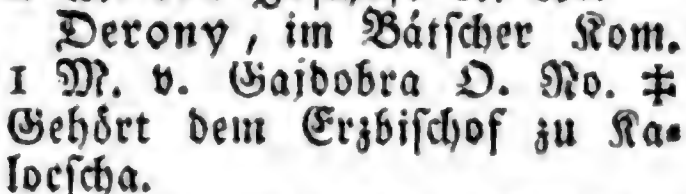 Derony, im Bátſcher Kom.
1 M. v. Gajdobra O. No. ‡
Gehört dem Erzbiſchof zu Ka=
locſcha.